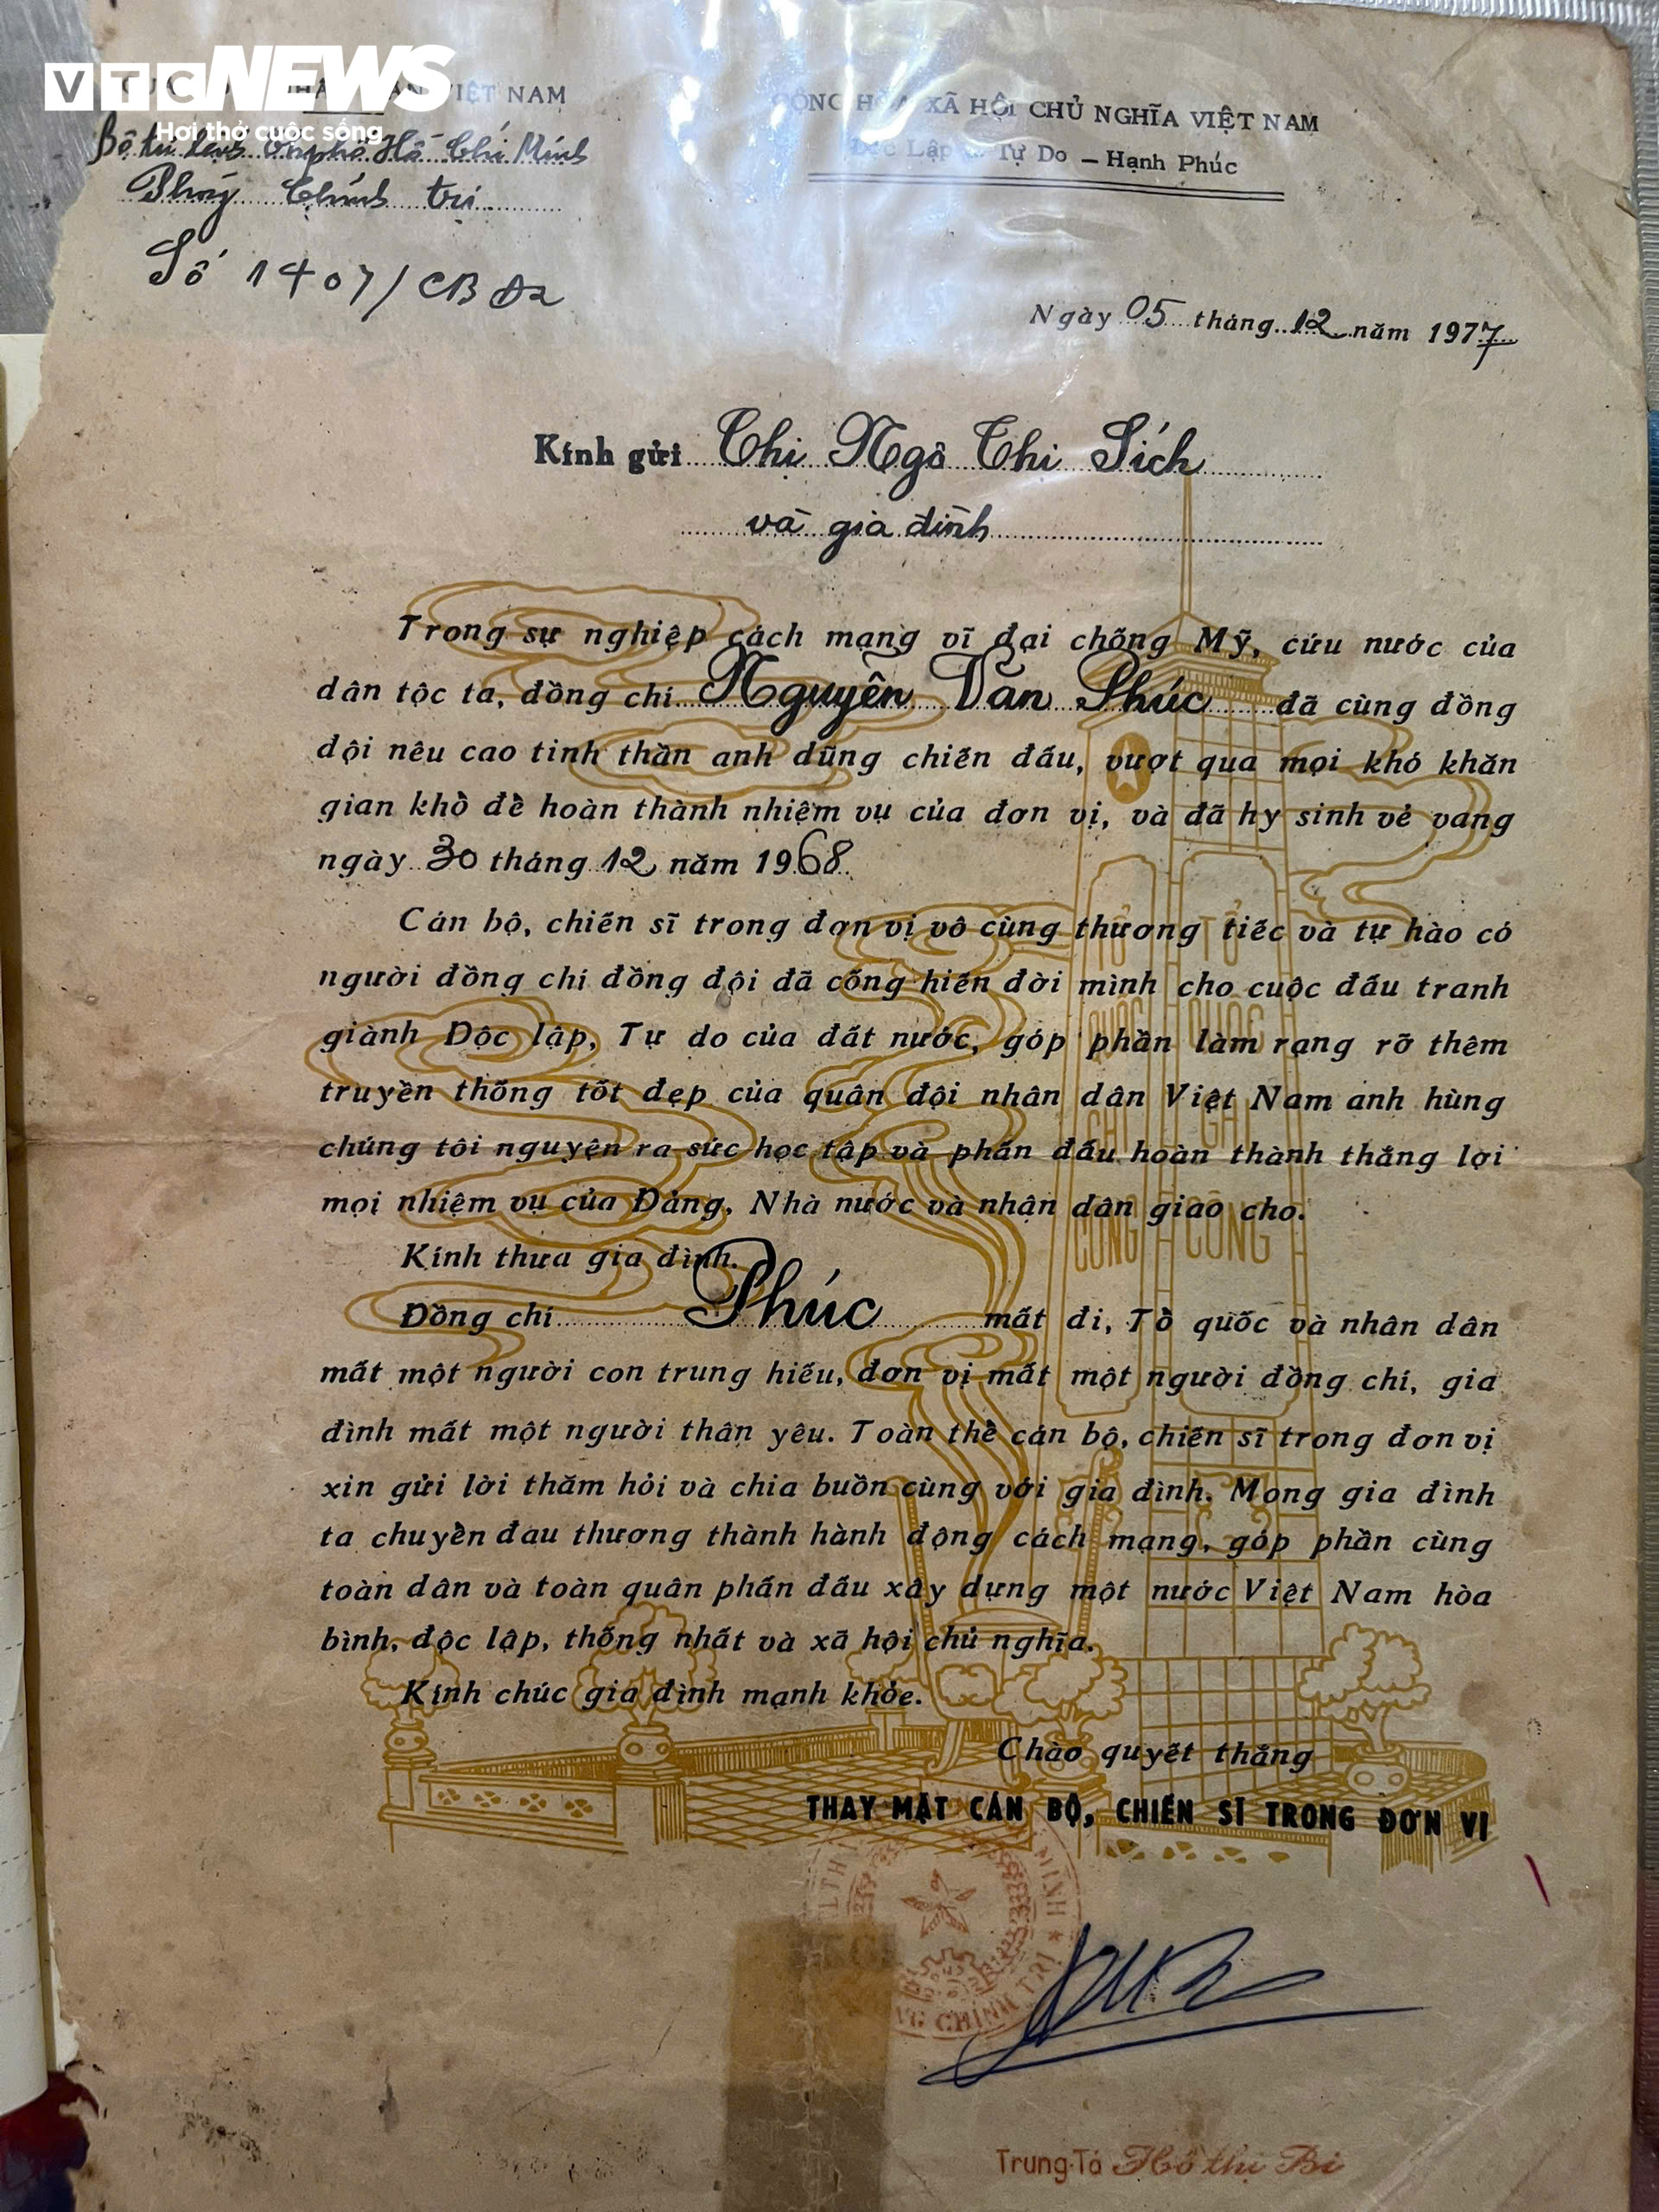 VTC NEWS
Hơi thở cuộc sống
VIỆT NAM
CỘNG HÒA XÃ HỘI CHỦ NGHĨA VIỆT NAM
Độc Lập – Tự Do – Hạnh Phúc
Hồ Chí Minh
Phòng Chính trị
Số 1407/CB
Ngày 05 tháng 12 năm 1977
Kính gửi Chị Ngô Thị Sích
và gia đình
Trong sự nghiệp cách mạng vĩ đại chống Mỹ, cứu nước của
dân tộc ta, đồng chí Nguyễn Văn Phúc đã cùng đồng
đội nêu cao tinh thần anh dũng chiến đấu, vượt qua mọi khó khăn
gian khổ để hoàn thành nhiệm vụ của đơn vị, và đã hy sinh vẻ vang
ngày 30 tháng 12 năm 1968.
Cán bộ, chiến sĩ trong đơn vị vô cùng thương tiếc và tự hào có
người đồng chí đồng đội đã cống hiến đời mình cho cuộc đấu tranh
giành Độc lập, Tự do của đất nước, góp phần làm rạng rỡ thêm
truyền thống tốt đẹp của quân đội nhân dân Việt Nam anh hùng
chúng tôi nguyện ra sức học tập và phấn đấu hoàn thành thắng lợi
mọi nhiệm vụ của Đảng, Nhà nước và nhân dân giao cho.
Kính thưa gia đình.
Đồng chí Phúc mất đi, Tổ quốc và nhân dân
mất một người con trung hiếu, đơn vị mất một người đồng chí, gia
đình mất một người thân yêu. Toàn thể cán bộ, chiến sĩ trong đơn vị
xin gửi lời thăm hỏi và chia buồn cùng với gia đình. Mong gia đình
ta chuyển đau thương thành hành động cách mạng, góp phần cùng
toàn dân và toàn quân phấn đấu xây dựng một nước Việt Nam hòa
bình, độc lập, thống nhất và xã hội chủ nghĩa.
Kính chúc gia đình mạnh khỏe.
Chào quyết thắng
THAY MẶT CÁN BỘ, CHIẾN SĨ TRONG ĐƠN VỊ
TỔ QUỐC GHI CÔNG
MINH
CHÍNH TRỊ
Trung Tá Hồ thị Bi